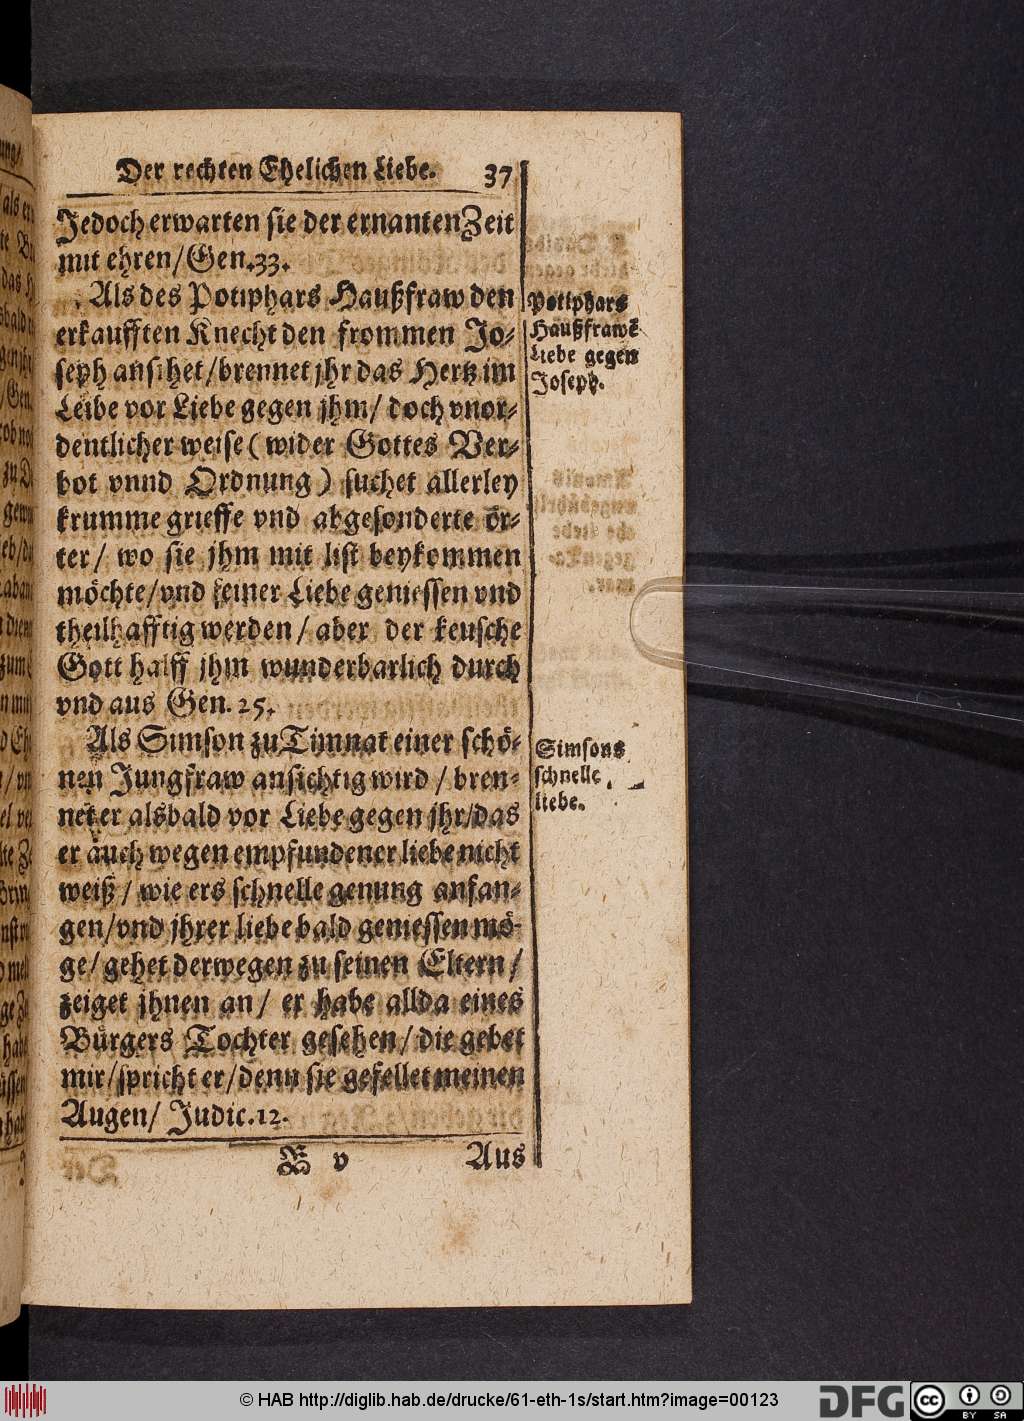 Der rechten Ehelichen Liebe. 37
Jedoch erwarten sie der ernanten Zeit
mit ehren/ Gen. 33.
Als des Potiphars Haußfraw den
erkaufften Knecht den frommen Jo-
seph ansihet/ brennet jhr das Hertz im
Leibe vor Liebe gegen jhm/ doch vnor-
dentlicher weise ( wider Gottes Ver-
bot vnnd Ordnung ) suchet allerley
krumme grieffe vnd abgesonderte ör-
ter/ wo sie jhm mit list beykommen
möchte/ vnd seiner Liebe geniessen vnd
theilhafftig werden / aber der keusche
Gott halff jhm wunderbarlich durch
vnd aus Gen. 25.
Als Simson zu Timnat einer schö-
nen Jungfraw ansichtig wird / bren-
net er alsbald vor Liebe gegen jhr/ das
er auch wegen empfundener liebe nicht
weiß / wie ers schnelle genung anfan-
gen/ vnd jhrer liebe bald geniessen mö-
ge/ gehet derwegen zu seinen Eltern /
zeiget jhnen an / er habe allda eines
Bürgers Tochter gesehen/ die gebet
mir/ spricht er/ denn sie gefellet meinen
Augen/ Judic. 12.
v Aus
Potiphars
Haußfrawē
Liebe gegen
Joseph.
Simsons
schnelle
liebe.
© HAB http://diglib.hab.de/drucke/61-eth-1s/start.htm?image=00123
DFG
cc
BY SA